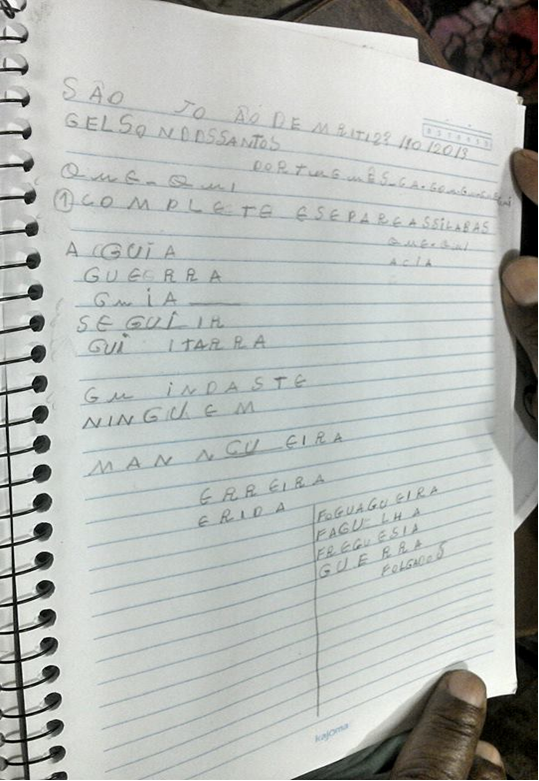 SÃO JOÃO DE MRITI 23/10/2013
GELSO NDOSSANTOS
PORTUGUÊS
QUE - QUI
① COMPLETE ESEPAREASSÍLABAS
QUE - QUI
AGUIA
ACIA
GUERRA
GUIA
SEGUIIR
GUI ITARRA
GU INDASTE
NINGUEM
MAN NGU EIRA
ERREIRA
ERIDA
FOGUAGUEIRA
FAGULHA
FREGUESIA
GUERRA
FOLGADOS
kajoma